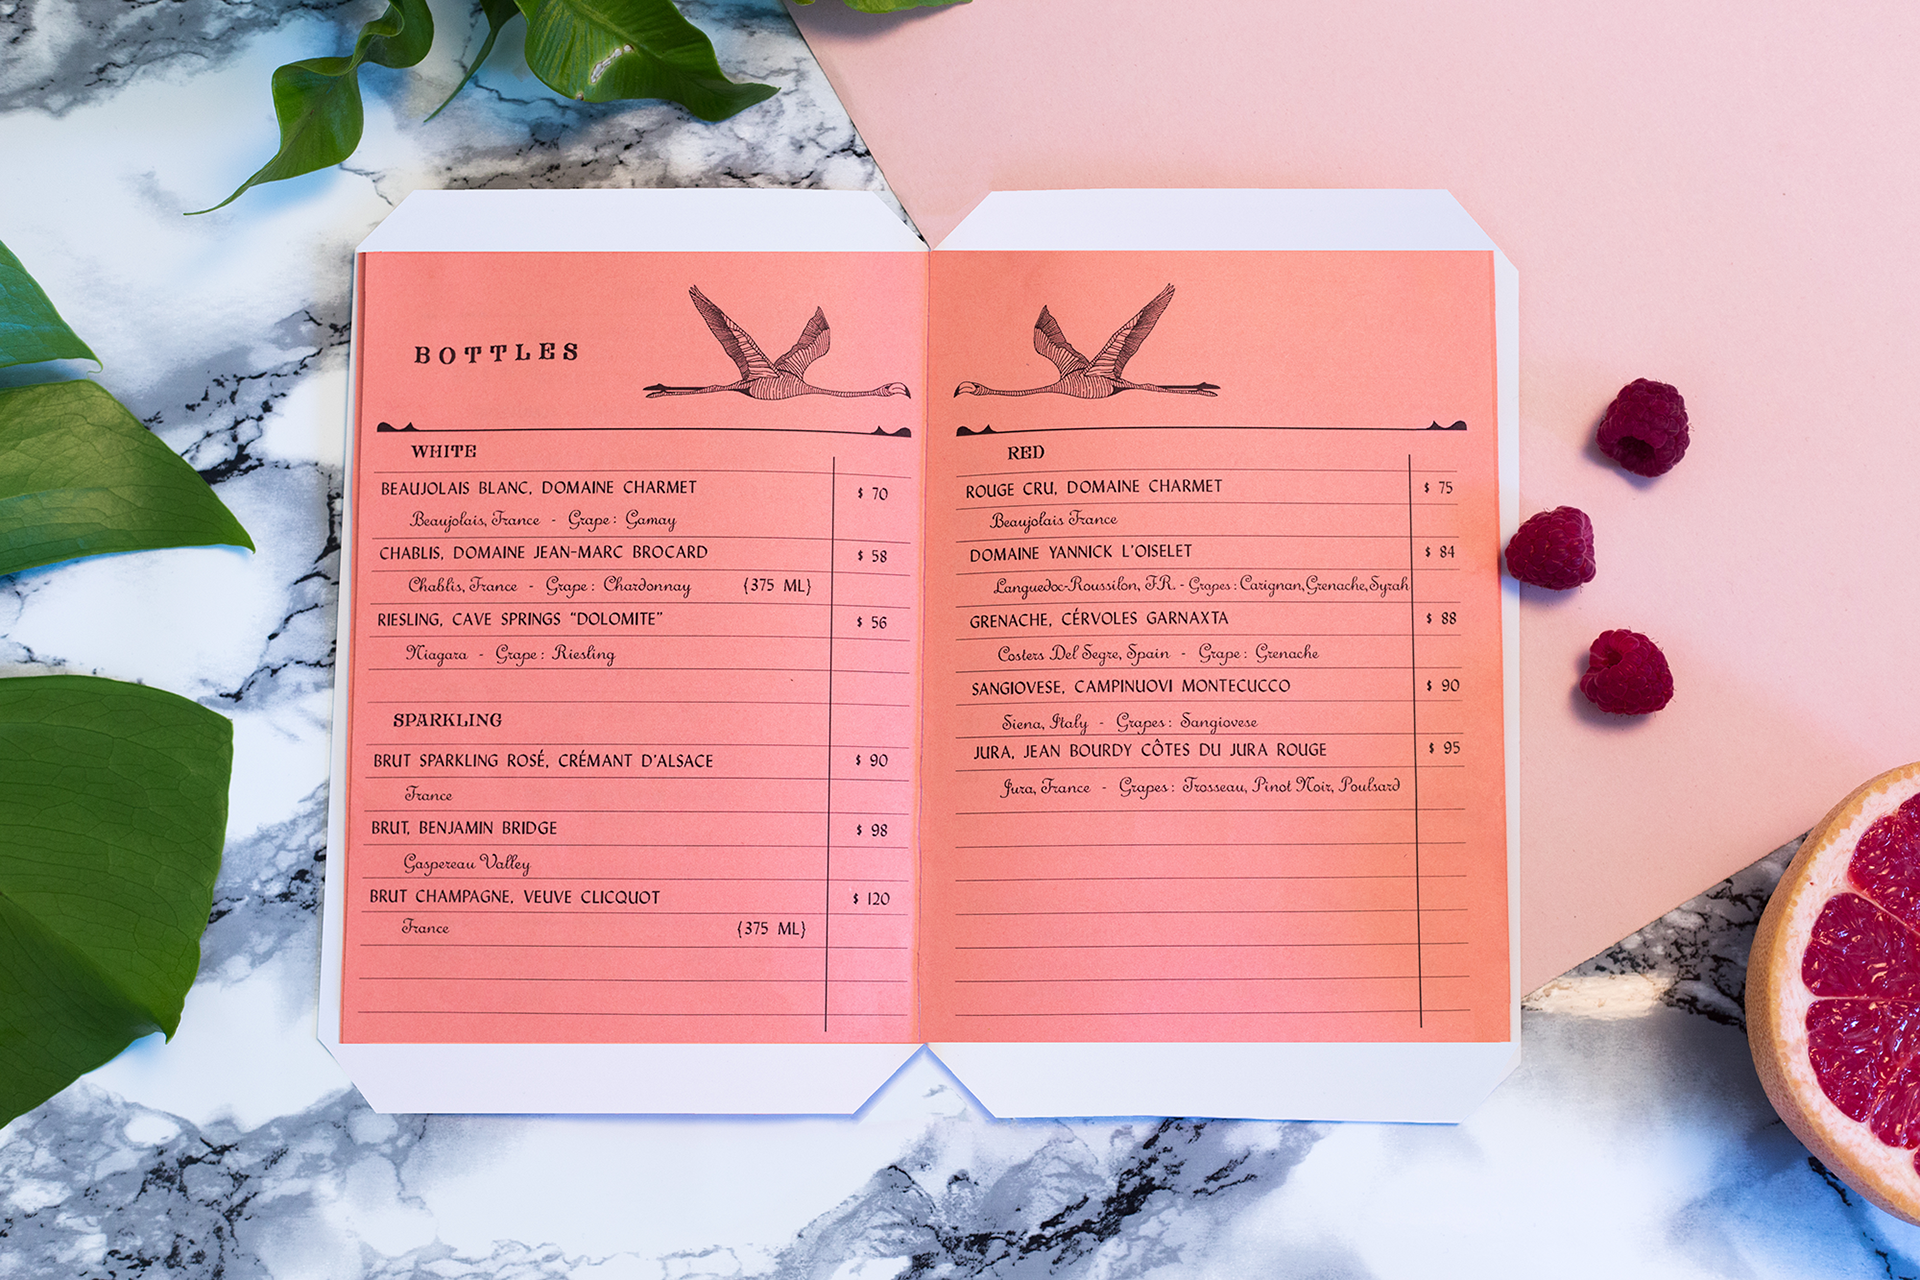 BOTTLES
WHITE
BEAUJOLAIS BLANC, DOMAINE CHARMET $ 70
Beaujolais, France - Grape: Gamay
CHABLIS, DOMAINE JEAN-MARC BROCARD $ 58
Chablis, France - Grape: Chardonnay {375 ML}
RIESLING, CAVE SPRINGS "DOLOMITE" $ 56
Niagara - Grape: Riesling
SPARKLING
BRUT SPARKLING ROSÉ, CRÉMANT D'ALSACE $ 90
France
BRUT, BENJAMIN BRIDGE $ 98
Gaspereau Valley
BRUT CHAMPAGNE, VEUVE CLICQUOT $ 120
France {375 ML}
RED
ROUGE CRU, DOMAINE CHARMET $ 75
Beaujolais France
DOMAINE YANNICK L'OISELET $ 84
Languedoc-Roussilon, FR. - Grapes: Carignan, Grenache, Syrah
GRENACHE, CÉRVOLES GARNAXTA $ 88
Costers Del Segre, Spain - Grape: Grenache
SANGIOVESE, CAMPINUOVI MONTECUCCO $ 90
Siena, Italy - Grapes: Sangiovese
JURA, JEAN BOURDY CÔTES DU JURA ROUGE $ 95
Jura, France - Grapes: Trosseau, Pinot Noir, Poulsard